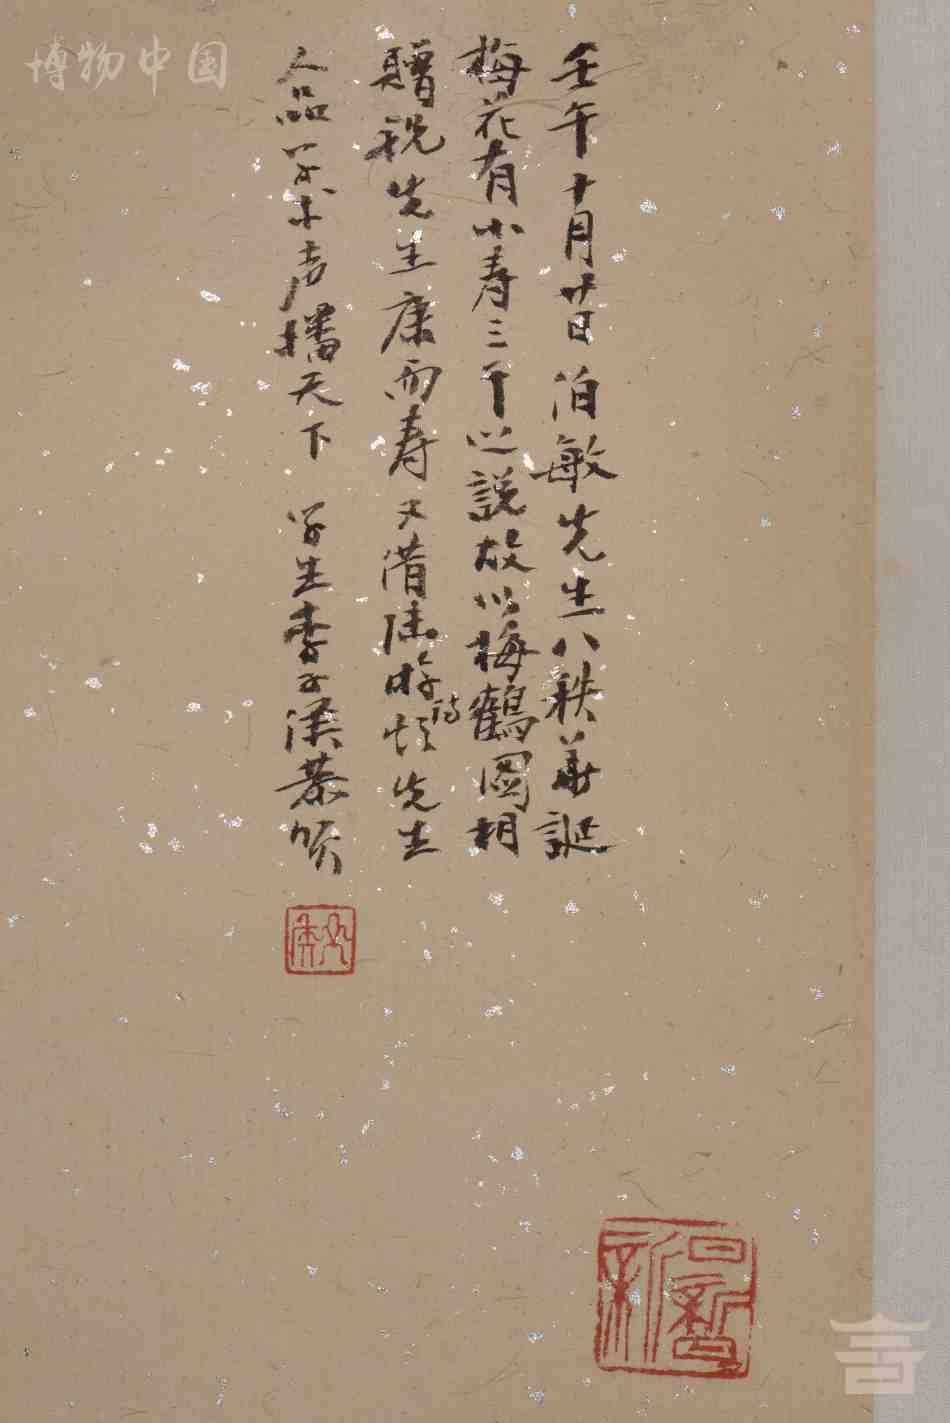 壬午十月廿日泊敏先生八秩華誕
梅花有小寿三千之説故以梅鶴圖相
贈祝先生康而寿又借陆游詩 先生
人品 学术声播天下 学生李子漢恭賀
博物中国
日新